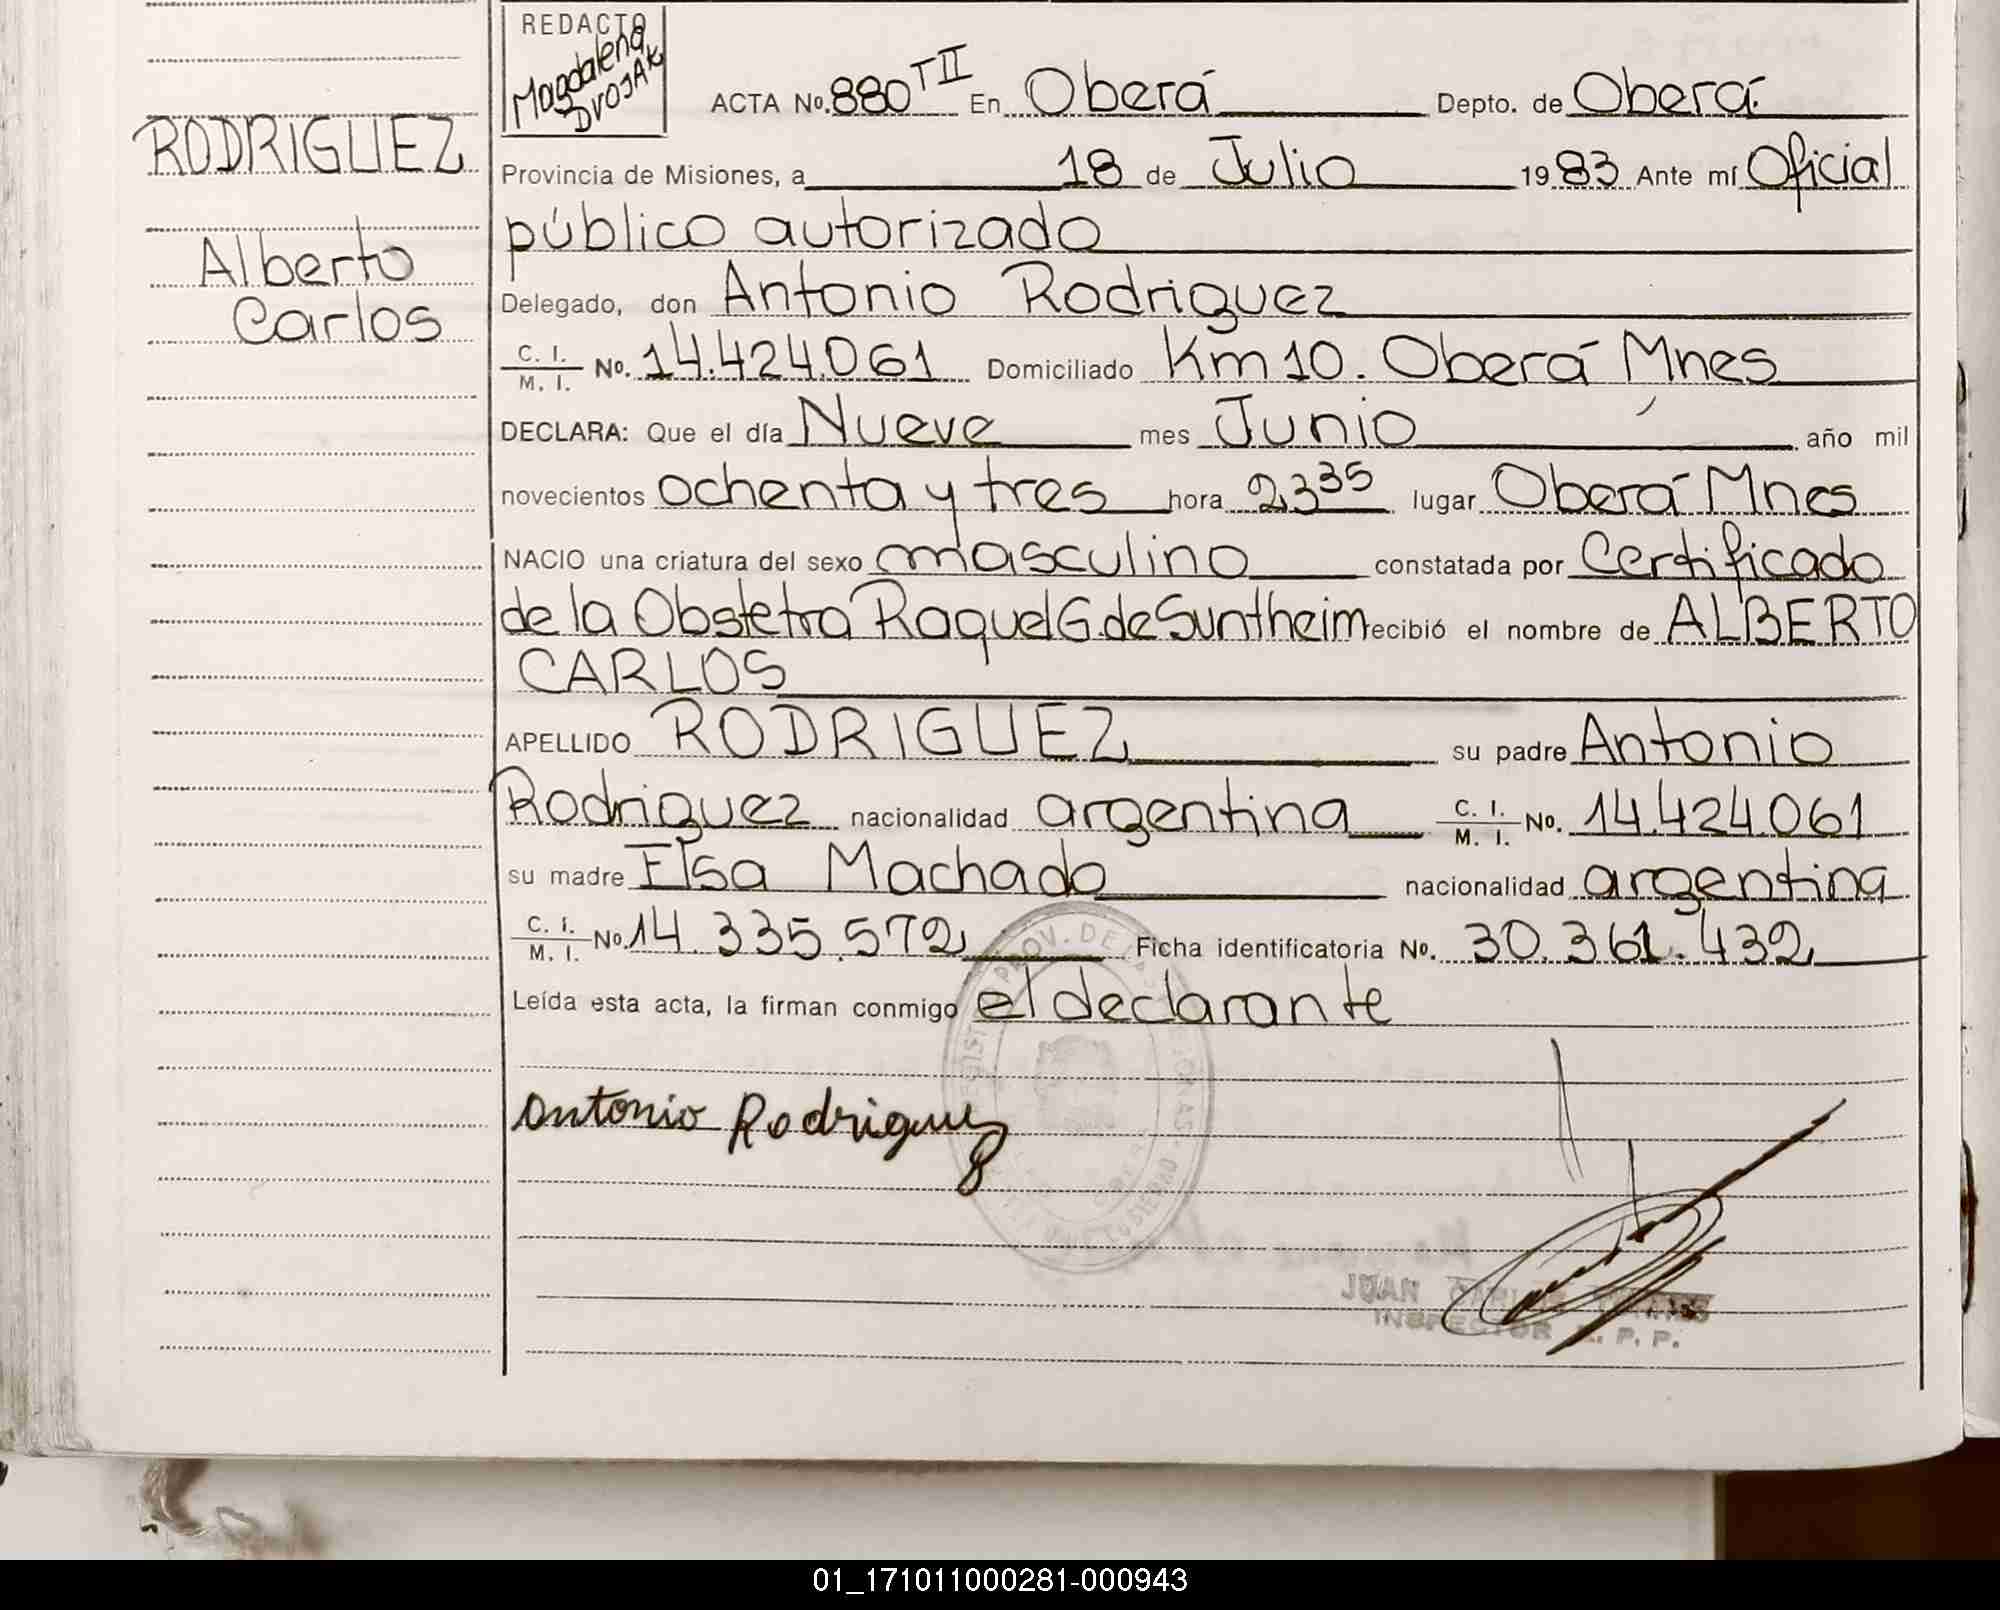 REDACTO
Magdalena
DVOJAK
ACTA No. 880 TII En Oberá Depto. de Oberá
RODRIGUEZ
Provincia de Misiones, a 18 de Julio 1983 Ante mí Oficial
público autorizado
Alberto
Carlos
Delegado, don Antonio Rodriguez
C. I.
M. I. No. 14.424.061 Domiciliado Km 10. Oberá Mnes
DECLARA: Que el día Nueve mes Junio año mil
novecientos ochenta y tres hora 23 35 lugar Oberá Mnes
NACIO una criatura del sexo masculino constatada por Certificado
de la Obstetra Raquel G. de Suntheim recibió el nombre de ALBERTO
CARLOS
APELLIDO RODRIGUEZ su padre Antonio
Rodriguez nacionalidad argentina C. I. M. I. No. 14.424.061
su madre Elsa Machado nacionalidad argentina
C. I.
M. I. No. 14.335.572 Ficha identificatoria No. 30.361.432
Leída esta acta, la firman conmigo el declarante
Antonio Rodriguez
PROV. DE
JUAN CARLOS
INSPECTOR R. P. P.
01_171011000281-000943